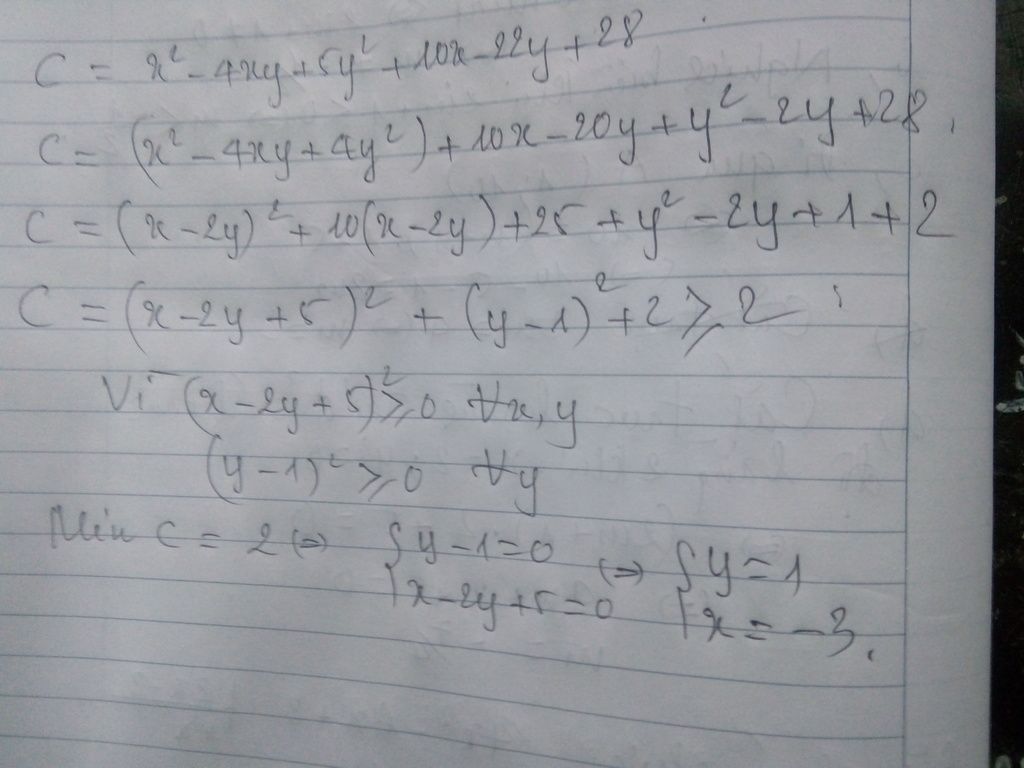 C = x² - 4xy + 5y² + 10x - 22y + 28
C = (x² - 4xy + 4y²) + 10x - 20y + y² - 2y + 28.
C = (x - 2y)² + 10(x - 2y) + 25 + y² - 2y + 1 + 2
C = (x - 2y + 5)² + (y - 1)² + 2 ≥ 2
Vì (x - 2y + 5)² ≥ 0 ∀x, y
(y - 1)² ≥ 0 ∀y
Min C = 2 ⇔ { y - 1 = 0 ⇔ { y = 1
x - 2y + 5 = 0 x = -3.